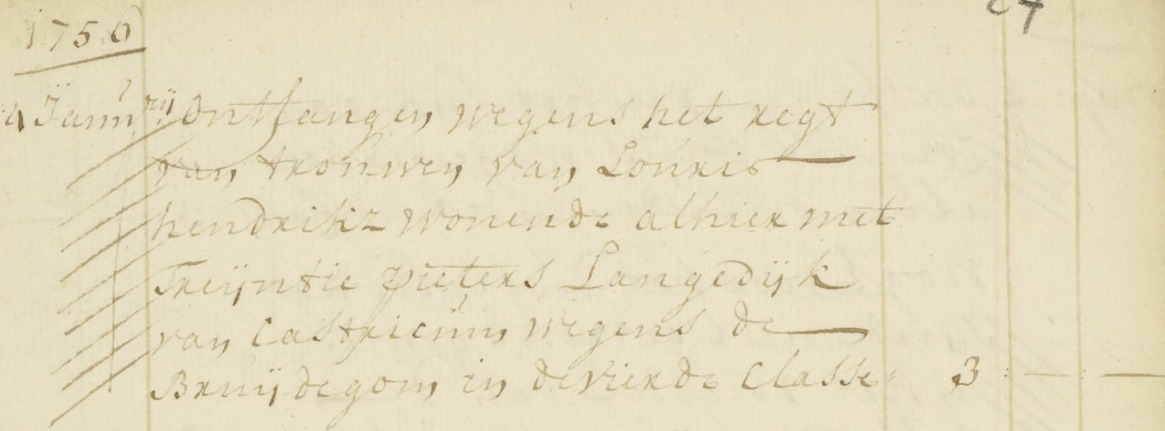 1750
27
4 Januarij ontfangen wegens het regt
van trouwen van Louris
hendrikz wonende alhier met
Treijntie pieters Langedijk
van Castricum wegens de
Bruijdegom in de vierde Classe 3 : — : —